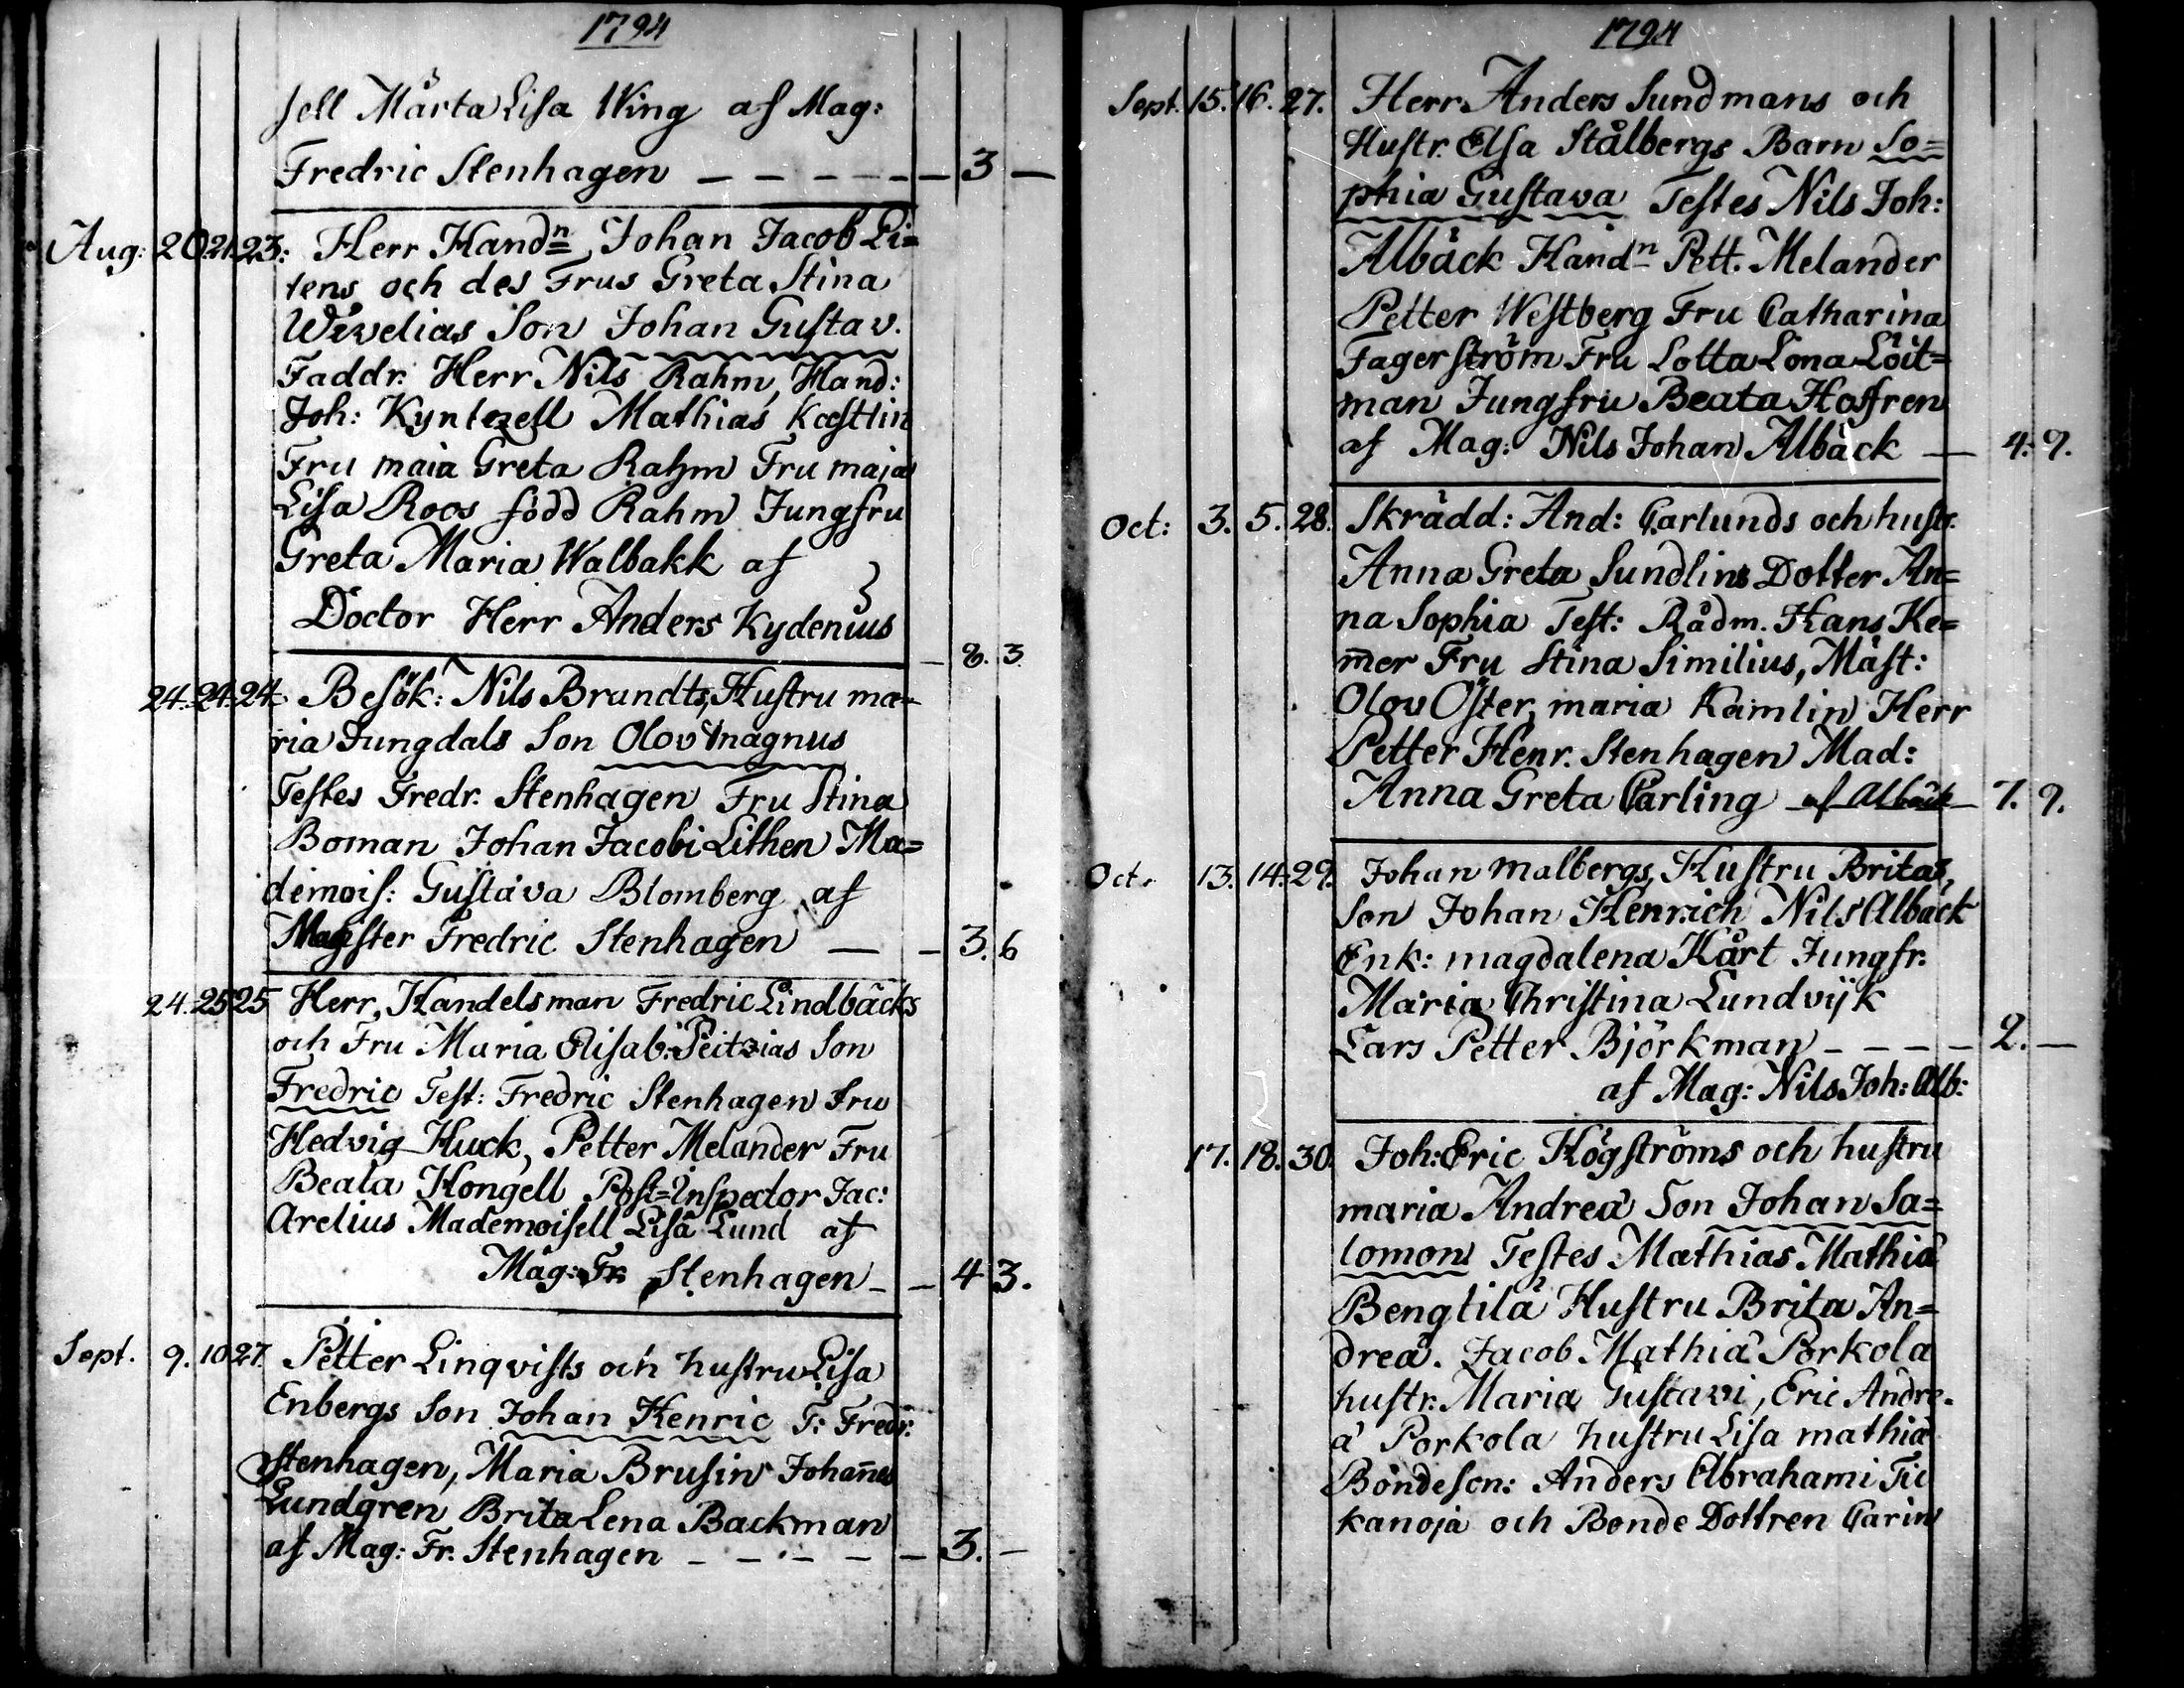 1794
sell Märta Lisa Wing af Mag:
Fredric Stenhagen — — — — — — 3 —
Aug: 20. 21. 23: Herr Handn Johan Jacob Li=
tens och des Frus Greta Stina
Wivelias Son Johan Gustav.
Faddr. Herr Nils Rahm, Hand:
Joh: Kyntzell Mathias Kæstlin
Fru maia Greta Rahm Fru maja
Lisa Roos född Rahm Jungfru
Greta Maria Walbakk af
Doctor Herr Anders Kydenius
— 8. 3.
24. 24. 24. Besök: Nils Brandts, Hustru ma=
ria Jungdals Son Olov magnus
Testes Fredr. Stenhagen Fru Stina
Boman Johan Jacobi Lithen Ma=
demois: Gustava Blomberg af
Magister Fredric Stenhagen — — 3. 6
24. 25 25 Herr Handelsman Fredric Lindbäcks
och Fru Maria Elisab: Peitzias Son
Fredric Test: Fredric Stenhagen Fru
Hedvig Huck, Petter Melander Fru
Beata Hongell Post=Inspector Jac:
Arelius Mademoisell Lisa Lund af
Mag: Fr. Stenhagen — — 4 3.
Sept. 9. 10 27. Petter Linqvists och hustru Lisa
Enbergs Son Johan Henric T: Fredr:
Stenhagen, Maria Brusin Johañes
Lundgren Brita Lena Backman
af Mag: Fr. Stenhagen — — — — — 3. —
1794
Sept. 15. 16. 27. Herr Anders Sundmans och
Hustr. Elsa Stålbergs Barn So=
phia Gustava Testes Nils Joh:
Albäck Handn Pett. Melander
Petter Westberg Fru Catharina
Fagerström Fru Lotta Lona Löit=
man Jungfru Beata Hoffren
af Mag: Nils Johan Albäck — 4. 9.
Oct: 3. 5. 28. Skrädd: And: Carlunds och hustr.
Anna Greta Sundlins Dotter An=
na Sophia Test: Rådm. Hans Ke=
mer Fru Stina Similius, Mäst:
Olov Öster, maria Kamlin Herr
Petter Henr. Stenhagen Mad:
Anna Greta Carling af Albäck 7. 9.
Oct. 13. 14. 29. Johan malbergs, Hustru Britas,
Son Johan Henrich Nils Albäck
Enk: magdalena Hårt Jungfr.
Maria Christina Lundvijk
Lars Petter Björkman — — — — 2. —
af Mag: Nils Joh: Alb:
17. 18. 30. Joh: Eric Högströms och hustru
maria Andreä Son Johan Sa=
lomon Testes Mathias Mathiä
Bengtilä Hustru Brita An=
dreä. Jacob Mathiä Porkola
hustr. Maria Gustavi, Eric Andre-
ä Porkola hustru Lisa mathiä
Bondeson: Anders Abrahami Tii
kanoja och Bonde Dottren Carin